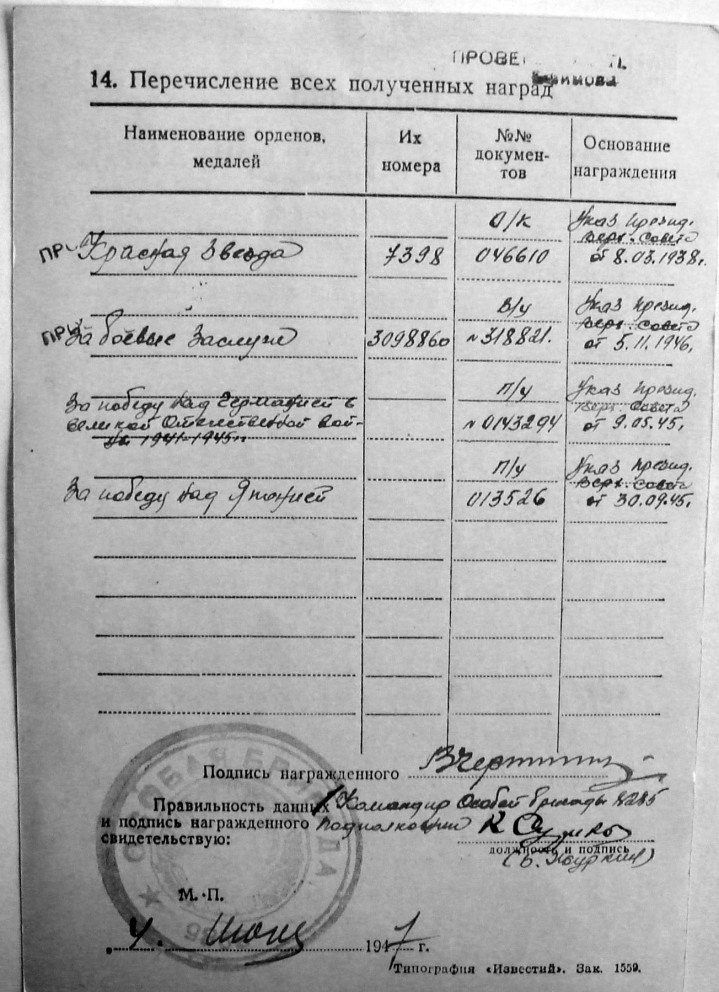 ПРОВЕ
14. Перечисление всех полученных наград
Наименование орденов, медалей
Их номера
№№ документов
Основание награждения
О/к Указ Презид.
Верх. Совета
Красная Звезда 7398 046610 от 8.03.1938г.
В/у Указ Презид.
Верх. Совета
За боевые заслуги 3098860 №318821. от 5.11.1946.
П/у Указ Презид.
За победу над Германией в Верх. Совета
великой Отечественной вой- №0143294 от 9.05.45.
не 1941-1945гг
П/у Указ Презид.
Верх. Совета
За победу над Японией 013526 от 30.09.45.
Подпись награжденного
Правильность данных Командир Особой бригады
и подпись награжденного подполковник
свидетельствую:
должность и подпись
М. П.
ОСОБАЯ БРИГАДА
4. Июня 1947 г.
Типография «Известий». Зак. 1559.